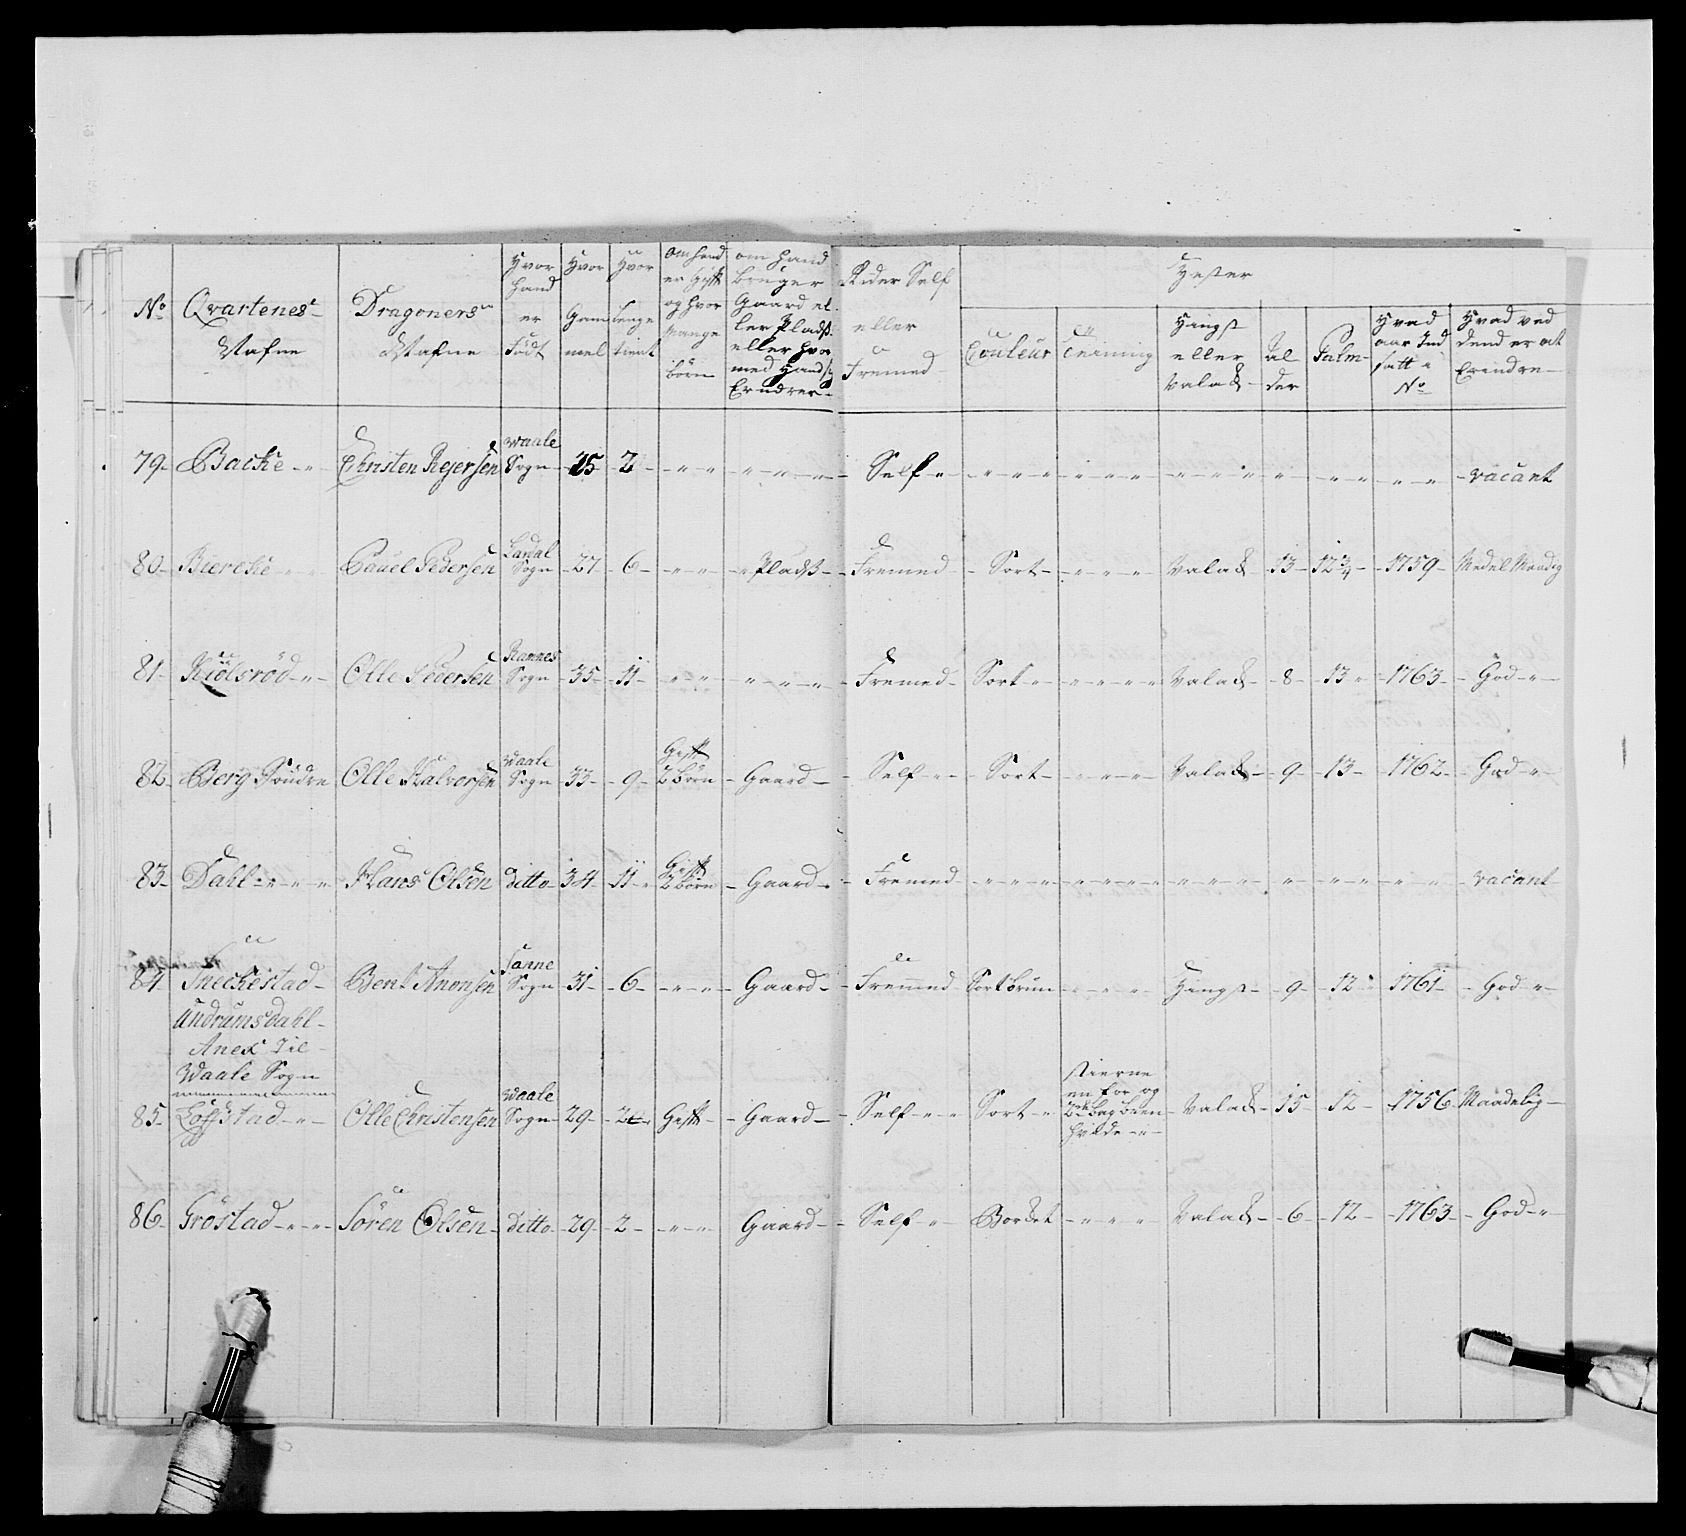 No Qvartenes Nafne | Dragoners Nafne | Hvor hand er Födt | Hvor Gammel | Hvor lenge tient | om hand er Gift og hvor mange börn | om hand bruger Gaard eller Pladß eller hvor med hand sig Ernærer | Rider Self eller Fremed | Hester: Couleur | Teining | Hingst eller Valak | Alder | Palm | Hvad aar Indsatt i No | Hvad ved dend er at Erindre
79 Backe | Christen Rejersen | Waale Sogn | 25 | 2 | " | " | Self | " | " | " | " | " | " | vacant
80 Biercke | Pauel Pedersen | Lardal Sogn | 27 | 6 | " | Pladß | Fremed | Sort | " | Valak | 13 | 12 3/4 | 1759 | Medel Maadig
81 Kiölsröd | Olle Pedersen | Ramnes Sogn | 35 | 11 | " | " | Fremed | Sort | " | Valak | 8 | 13 | 1763 | God
82 Berg Söndre | Olle Halvorsen | Waale Sogn | 33 | 9 | Gift 2 börn | Gaard | Self | Sort | " | Valak | 9 | 13 | 1762 | God
83 Dahl | Hans Olsen | ditto | 34 | 11 | Gift 2 börn | Gaard | Fremed | " | " | " | " | " | " | vacant
84 Sneckestad | Bent Anonsen | Sanne Sogn | 31 | 6 | " | Gaard | Fremed | Sortbrun | " | Hingst | 9 | 12 | 1761 | God
Undrumsdahl
Anex Til
Waale Sogn
85 Löffstad | Olle Christensen | Waale Sogn | 29 | 2 | Gift | Gaard | Self | Sort | stierne en for og 2de bag been hvide | Valak | 15 | 12 | 1756 | Maadelig
86 Gröstad | Sören Olsen | ditto | 29 | 2 | " | Gaard | Self | Borket | " | Valak | 6 | 12 | 1763 | God